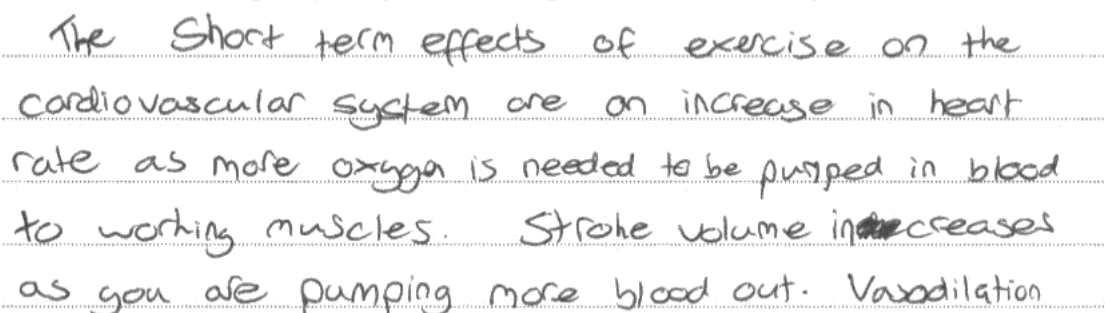 The Short term effects of exercise on the
cardiovascular system are an increase in heart
rate as more oxygen is needed to be pumped in blood
to working muscles. Stroke volume increases
as you are pumping more blood out. Vasodilation